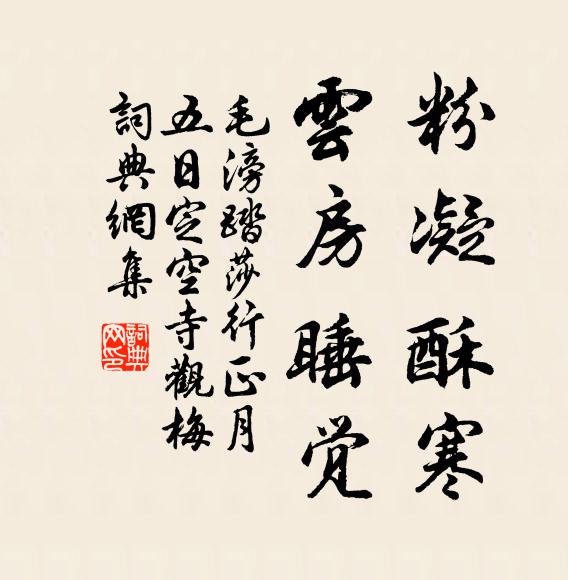 粉凝酥寒
雲房睡觉
毛滂踏莎行正月
五日定空寺觀梅
詞典網集
詞典
网印